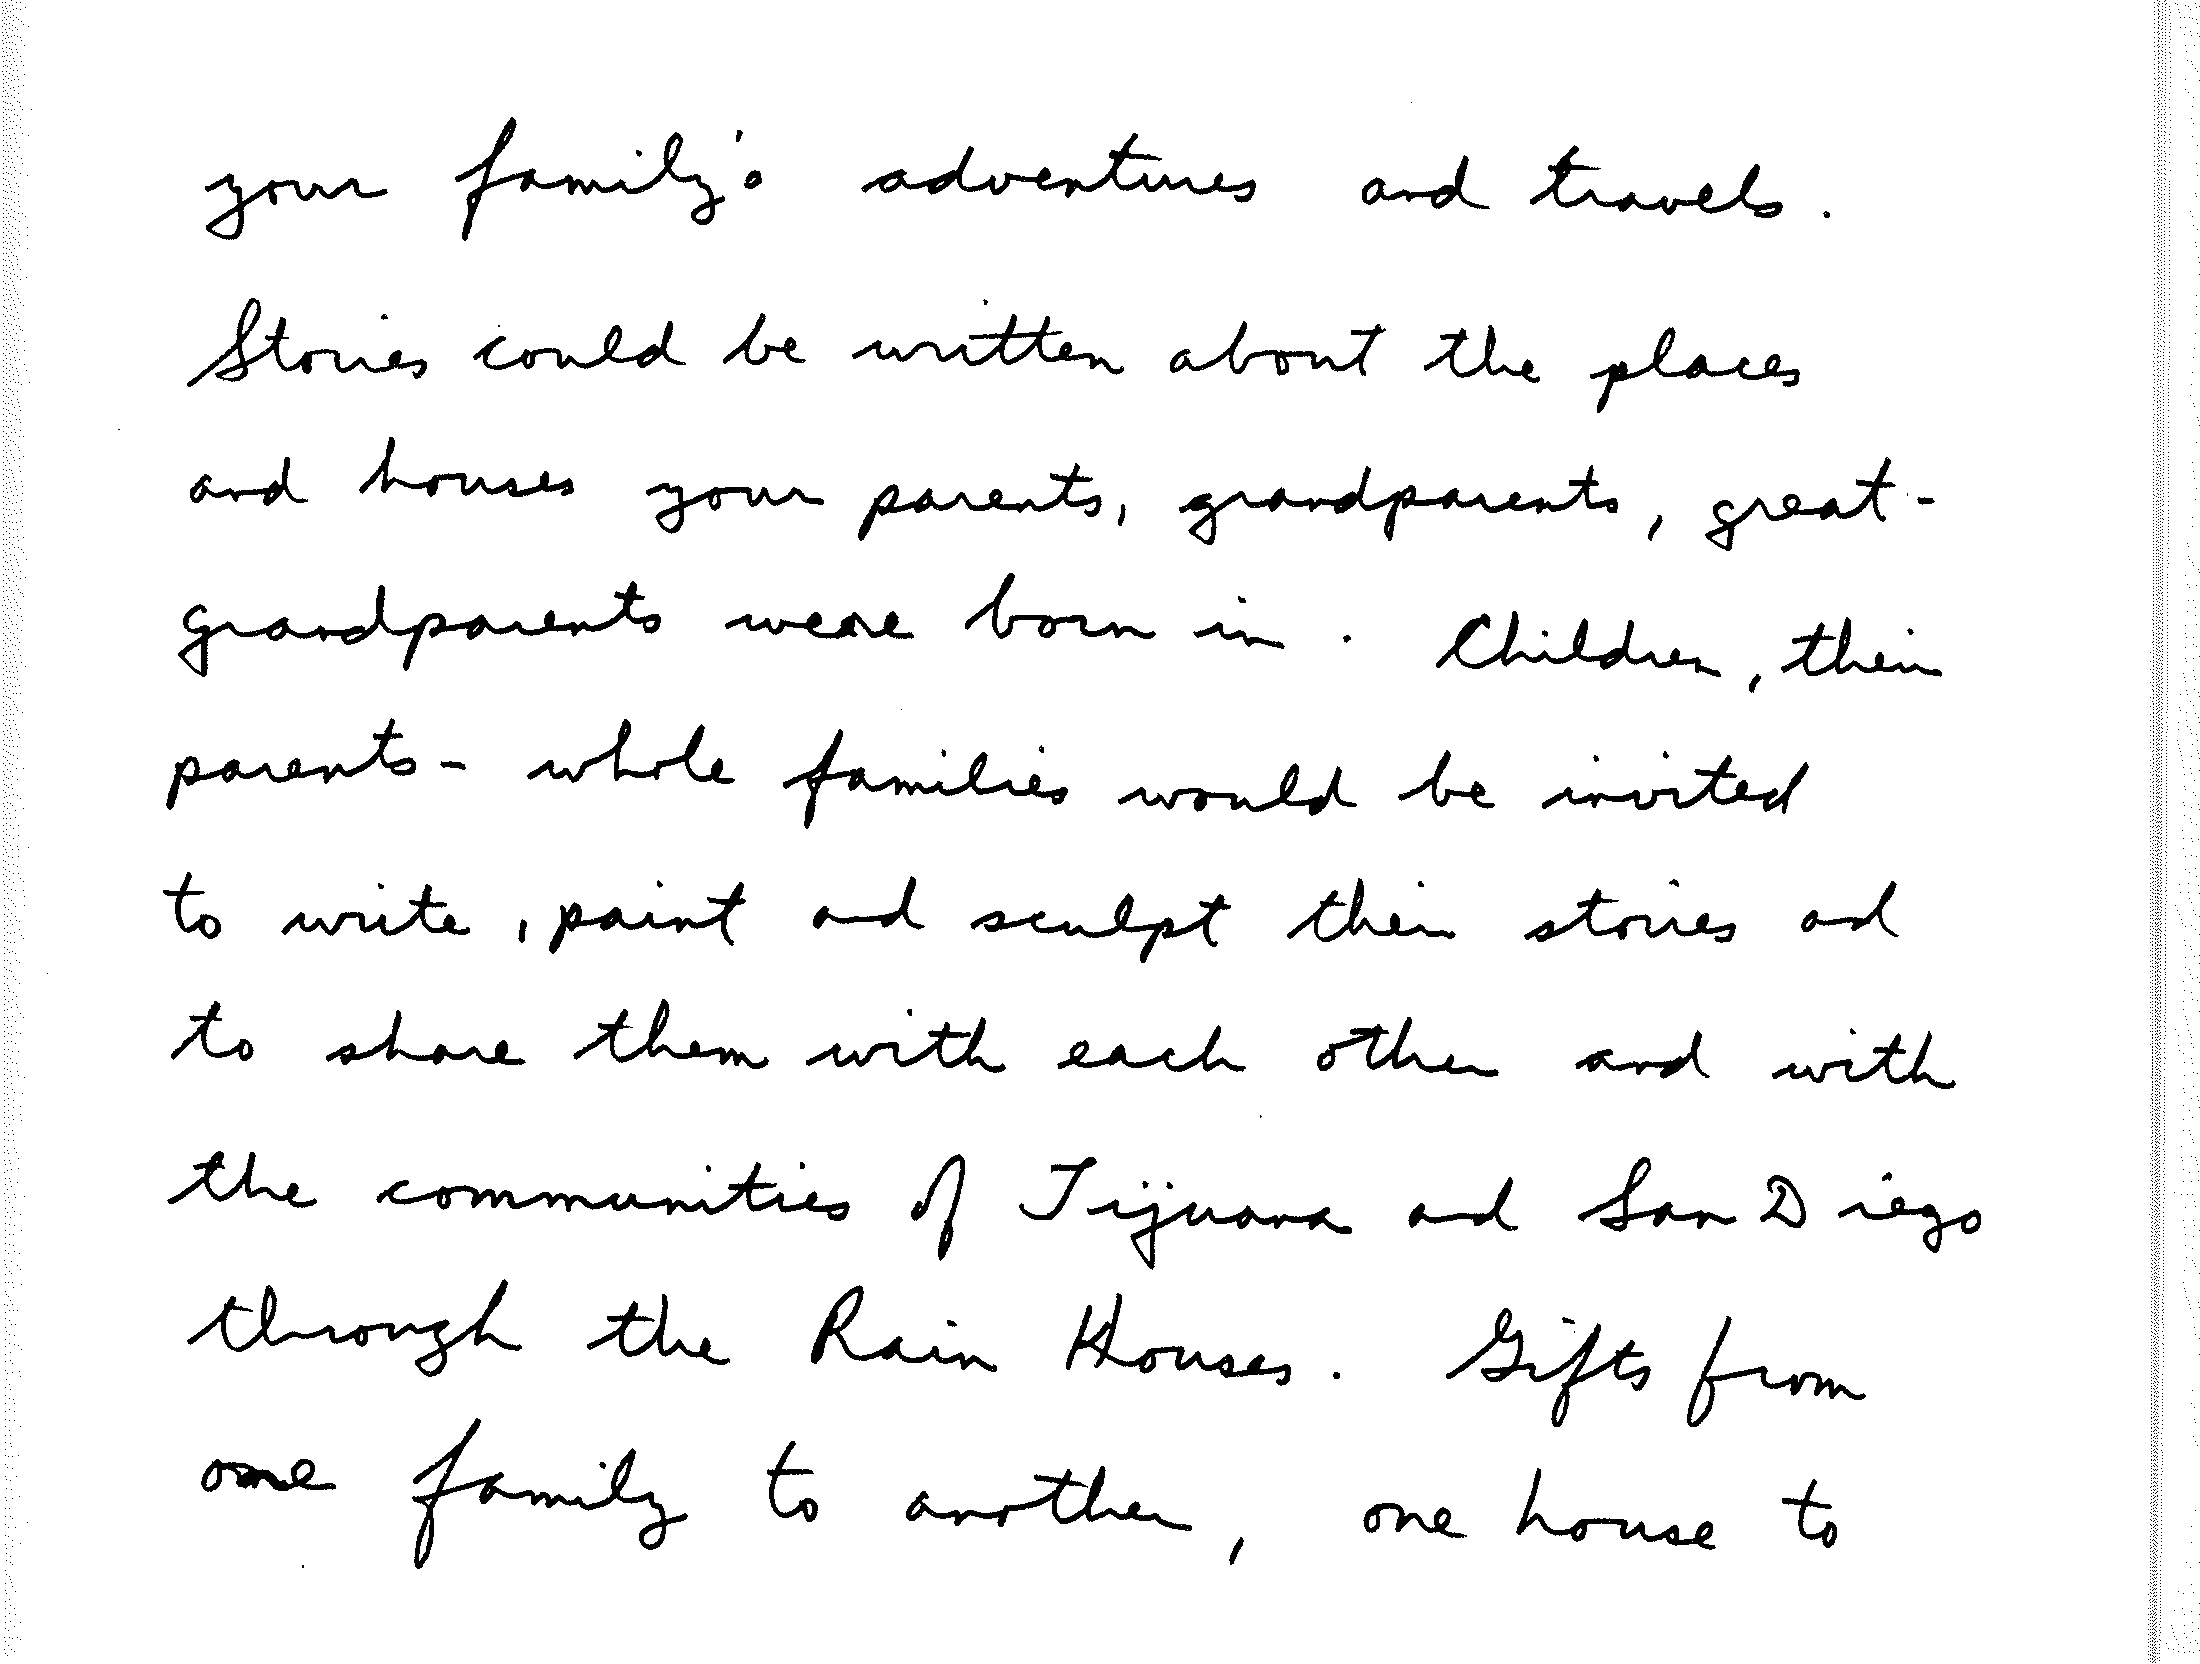 your family's adventures and travels.
Stories could be written about the places
and houses your parents, grandparents, great-
grandparents were born in. Children, their
parents - whole families would be invited
to write, paint and sculpt their stories and
to share them with each other and with
the communities of Tijuana and San Diego
through the Rain Houses. Gifts from
one family to another, one house to